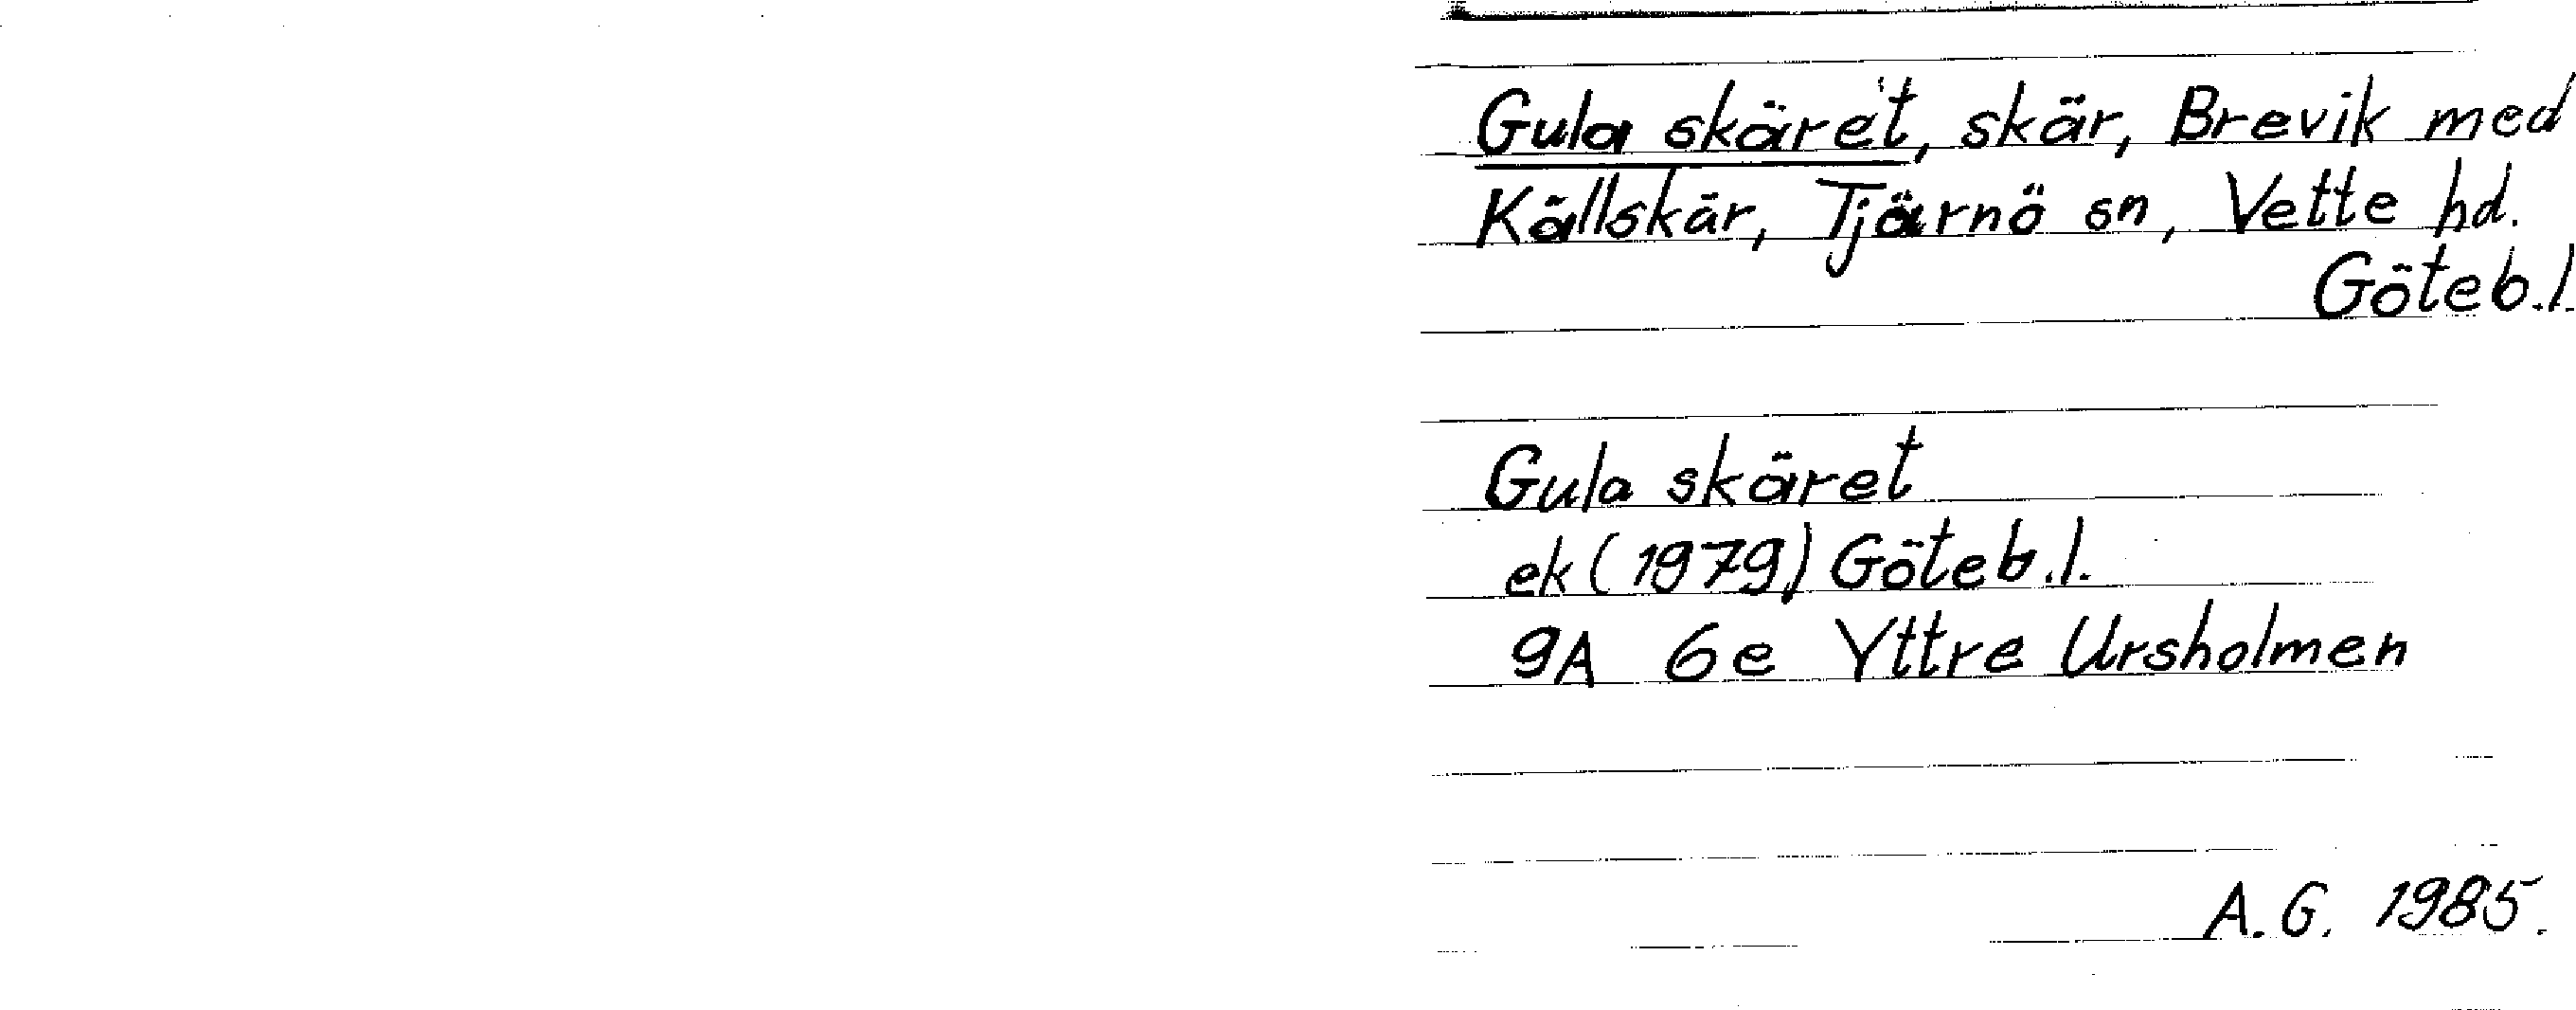 Gula skäret, skär, Brevik med
Källskär, Tjärnö sn, Vette hd.
Göteb.l.
Gula skäret
ek (1979) Göteb.l.
9A 6e Yttre Ursholmen
A.G. 1985.